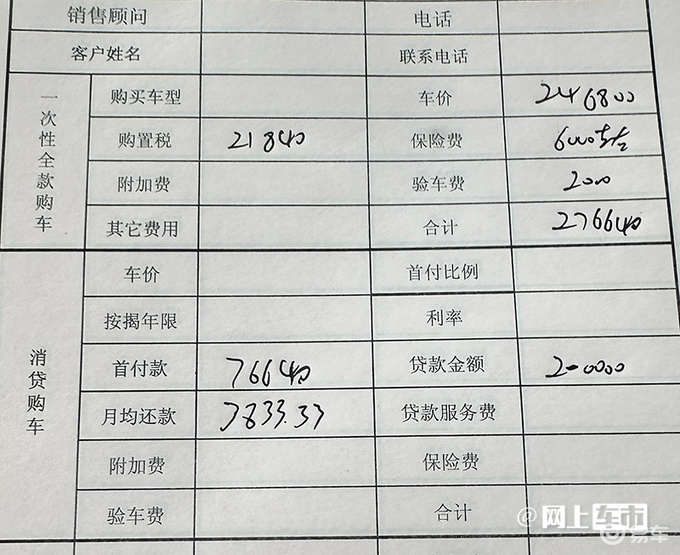 销售顾问 电话
客户姓名 联系电话
一次性全款购车
购买车型 车价 246800
购置税 21840 保险费 6000
附加费 验车费 2000
其它费用 合计 276640
消贷购车
车价 首付比例
按揭年限 利率
首付款 76640 贷款金额 200000
月均还款 3833.33 贷款服务费
附加费 保险费
验车费 合计
@网上车市
易车